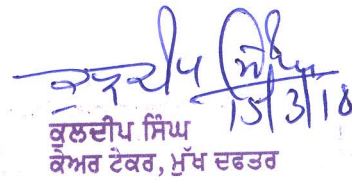 ਕੁਲਦੀਪ ਸਿੰਘ
15/3/18
ਕੁਲਦੀਪ ਸਿੰਘ
ਕੇਅਰ ਟੇਕਰ, ਮੁੱਖ ਦਫਤਰ